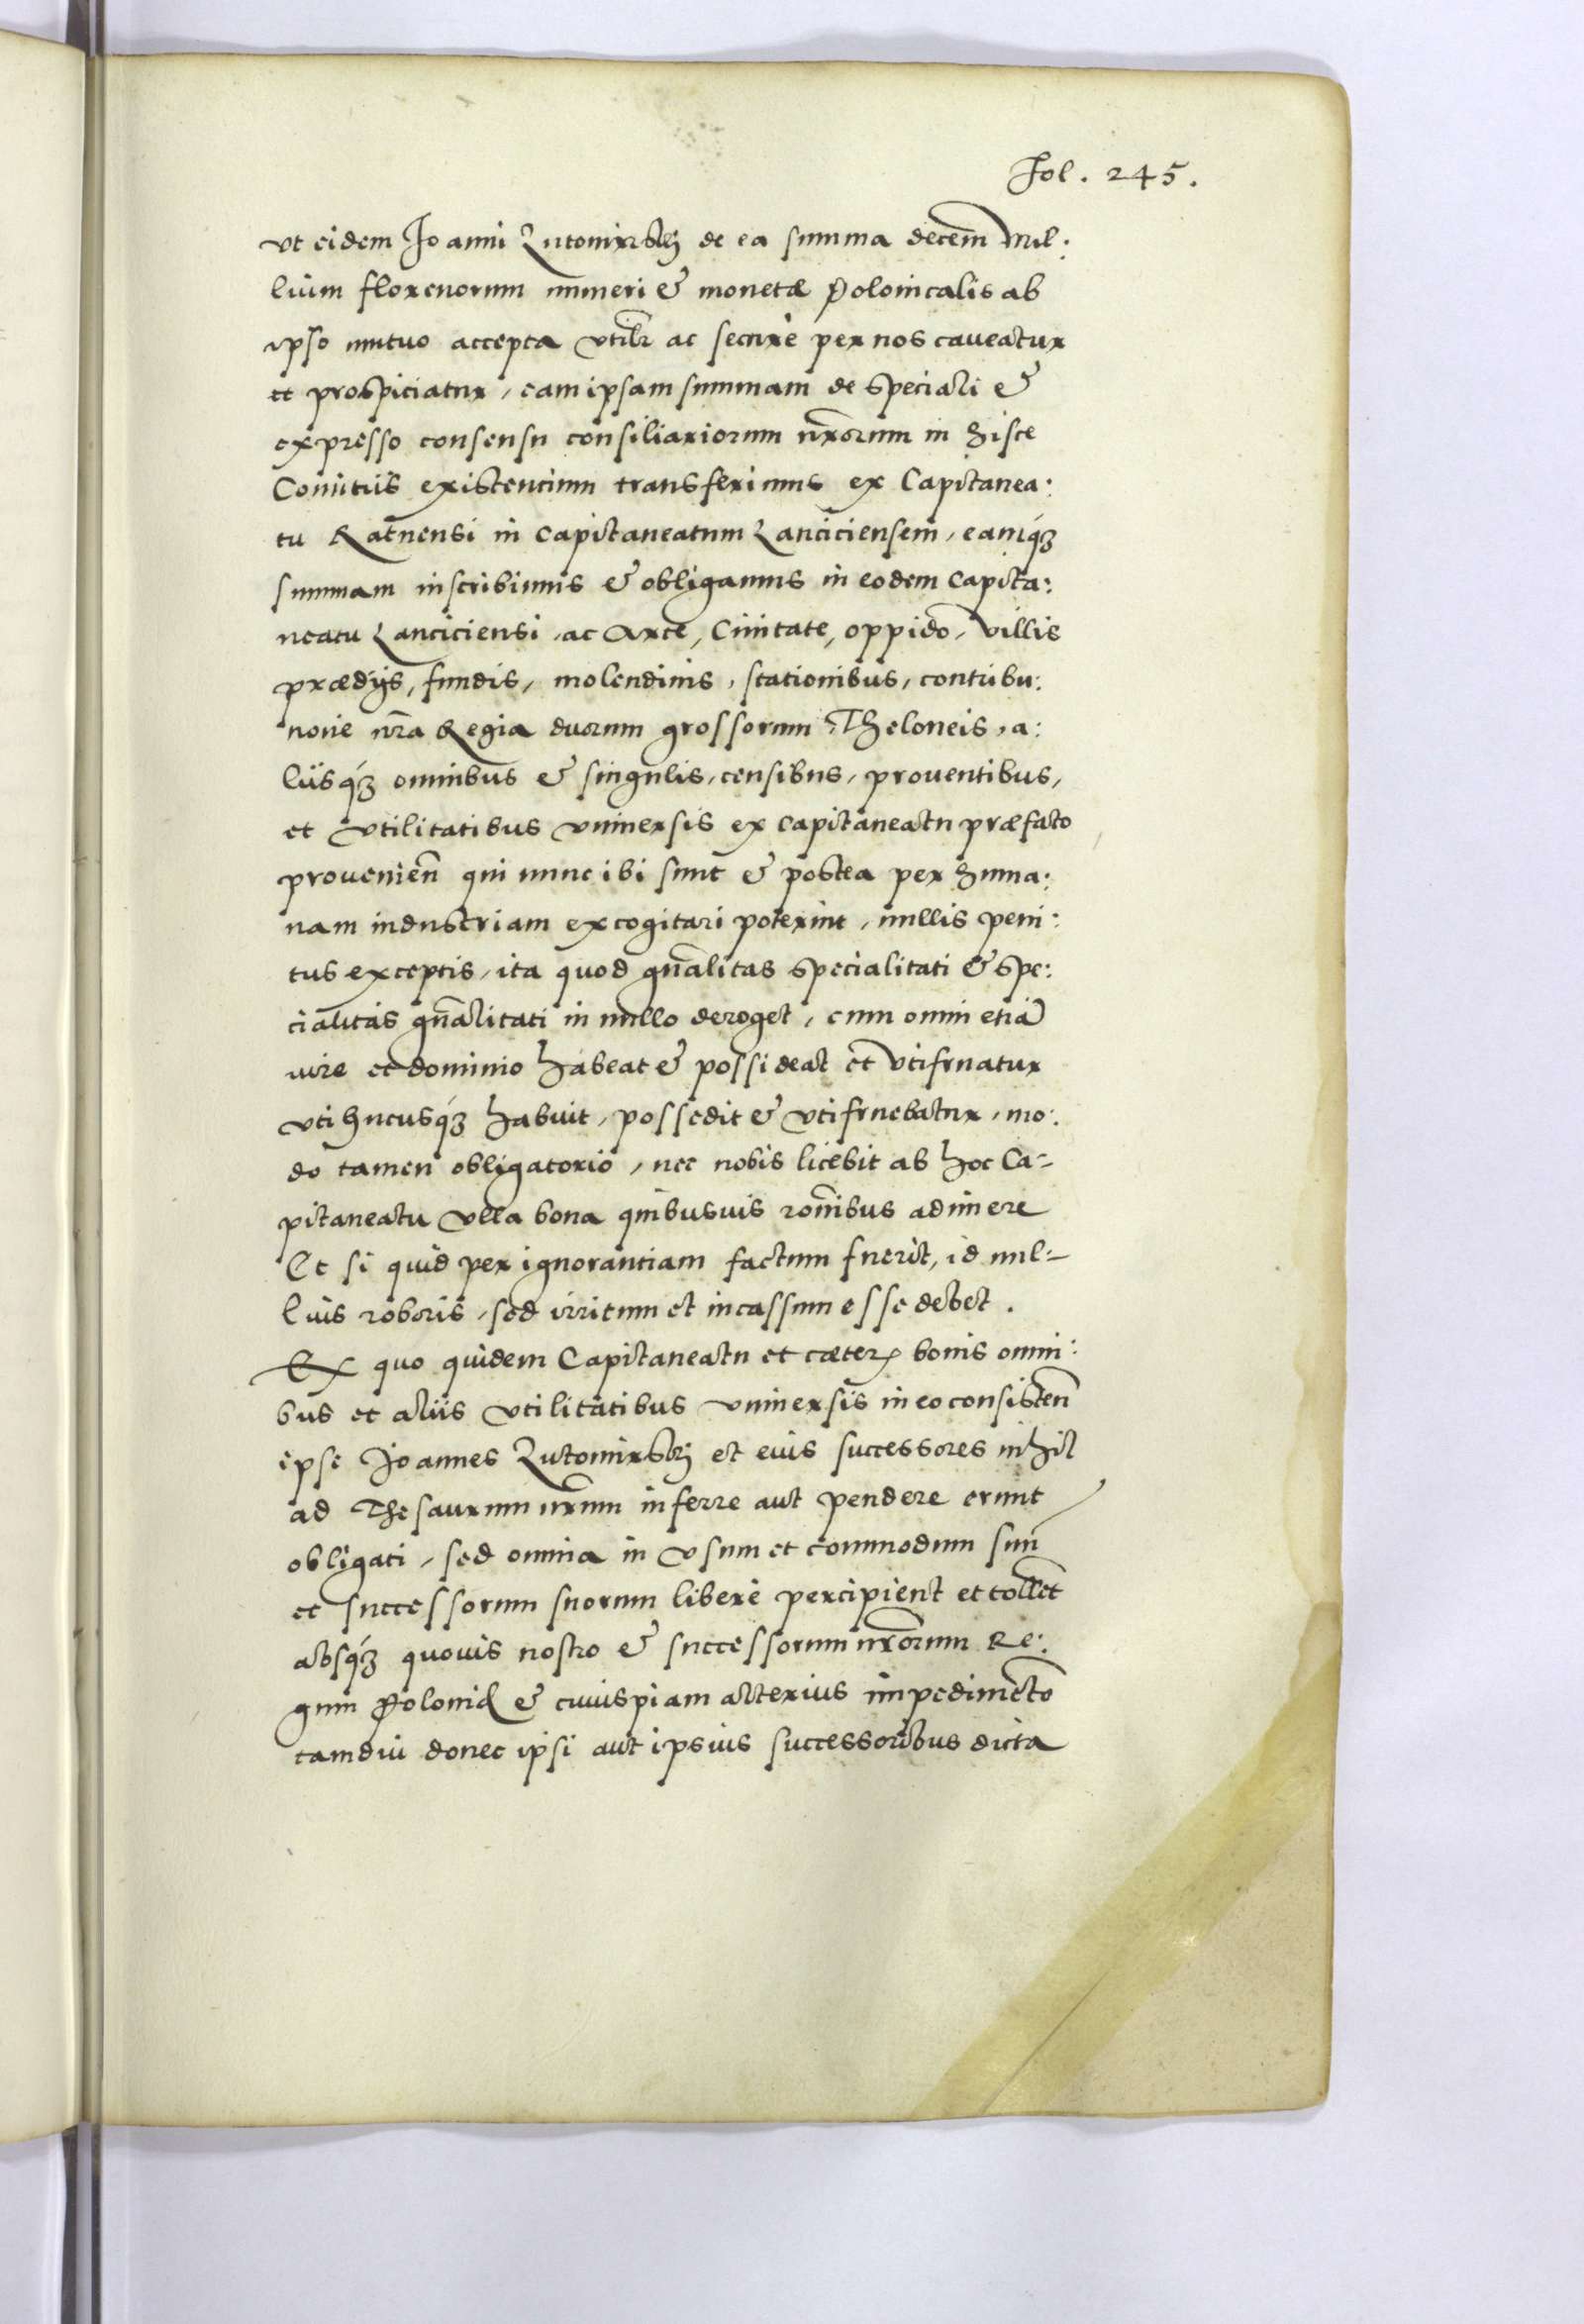 Fol. 245.
vt eidem Joanni Lutomirskj de ea summa decem mil:
lium florenorum numeri & monetæ Polonicalis ab
ipso mutuo accepta vtilr ac securè per nos caveatur
et prospiciatur, eam ipsam summam de speciali &
expresso consensu consiliariorum nrorum in hisce
Comitiis existentium transferimus ex Capitanea:
tu Ratnensi in Capitaneatum Lanciciensem, eamq́ꝫ
summam inscribimus & obligamus in eodem Capita:
neatu Lanciciensi, ac Arce, Ciuitate, oppido, villis
prædijs, fundis, molendinis, stationibus, contribu:
tione nra Regia duorum grossorum, Theloneis, a:
liisq́ꝫ omnibus & singulis, censibus, prouentibus,
et vtilitatibus vniuersis ex Capitaneatu præfato
prouenien̄ qui nunc ibi sunt & postea per huma:
nam industriam excogitari poterint, nullis peni:
tus exceptis, ita quod gnālitas specialitati & spe:
cialitas gnālitati in nullo deroget, cum omni etiā
iure et dominio habeat & possideat et vtifruatur
vti hucusq́ꝫ habuit, possedit & vtifruebatur, mo:
do tamen obligatorio, nec nobis licebit ab hoc Ca-
pitaneatu vlla bona quibusuis ronibus adimere
Et si quid per ignorantiam factum fuerit, id nul-
lius roboris, sed irritum et incassum esse debet.
Ex quo quidem Capitaneatu et cæter, bonis omni:
bus et aliis vtilitatibus vniuersis in eo consisten̄
ipse Joannes Lutomirskj et eius successores nihil
ad Thesaurum nrum inferre aut pendere erunt
obligati, sed omnia in vsum et commodum sui
et successorum suorum liberè percipient et tollēt
absq́ꝫ quouis nostro & successorum nrorum Re:
gum Poloniæ & cuiuspiam alterius impedimēto
tamdiu donec ipsi aut ipsius successoribus dicta